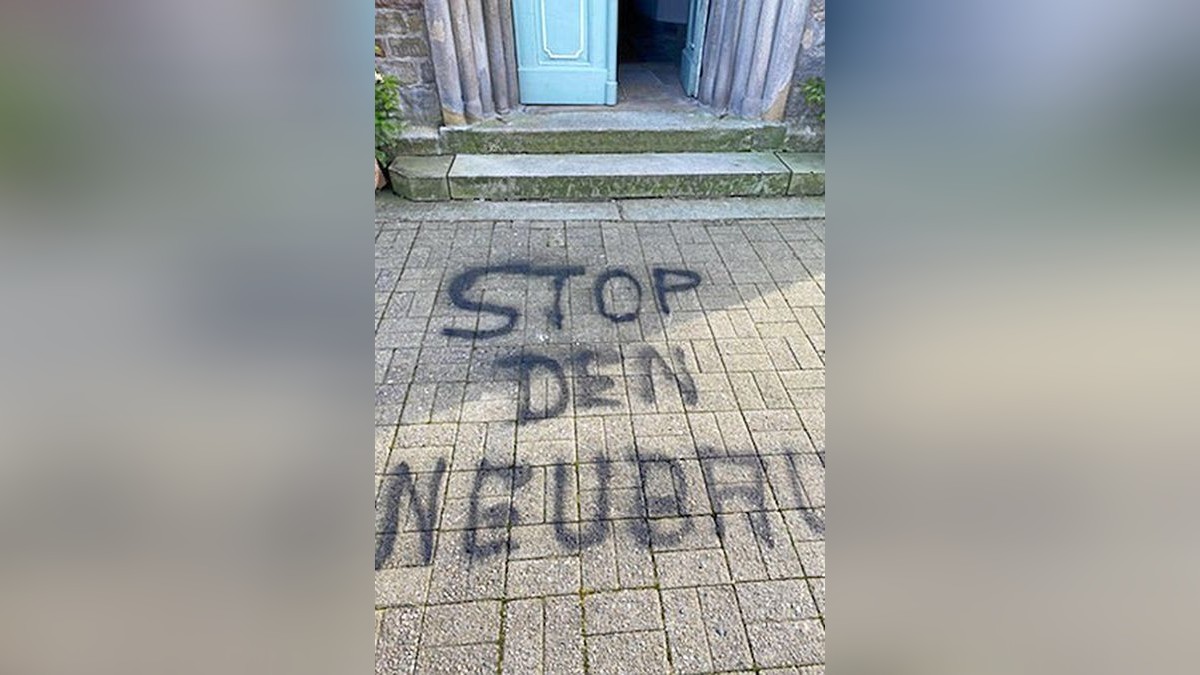 STOP
DEN
NEUBAU